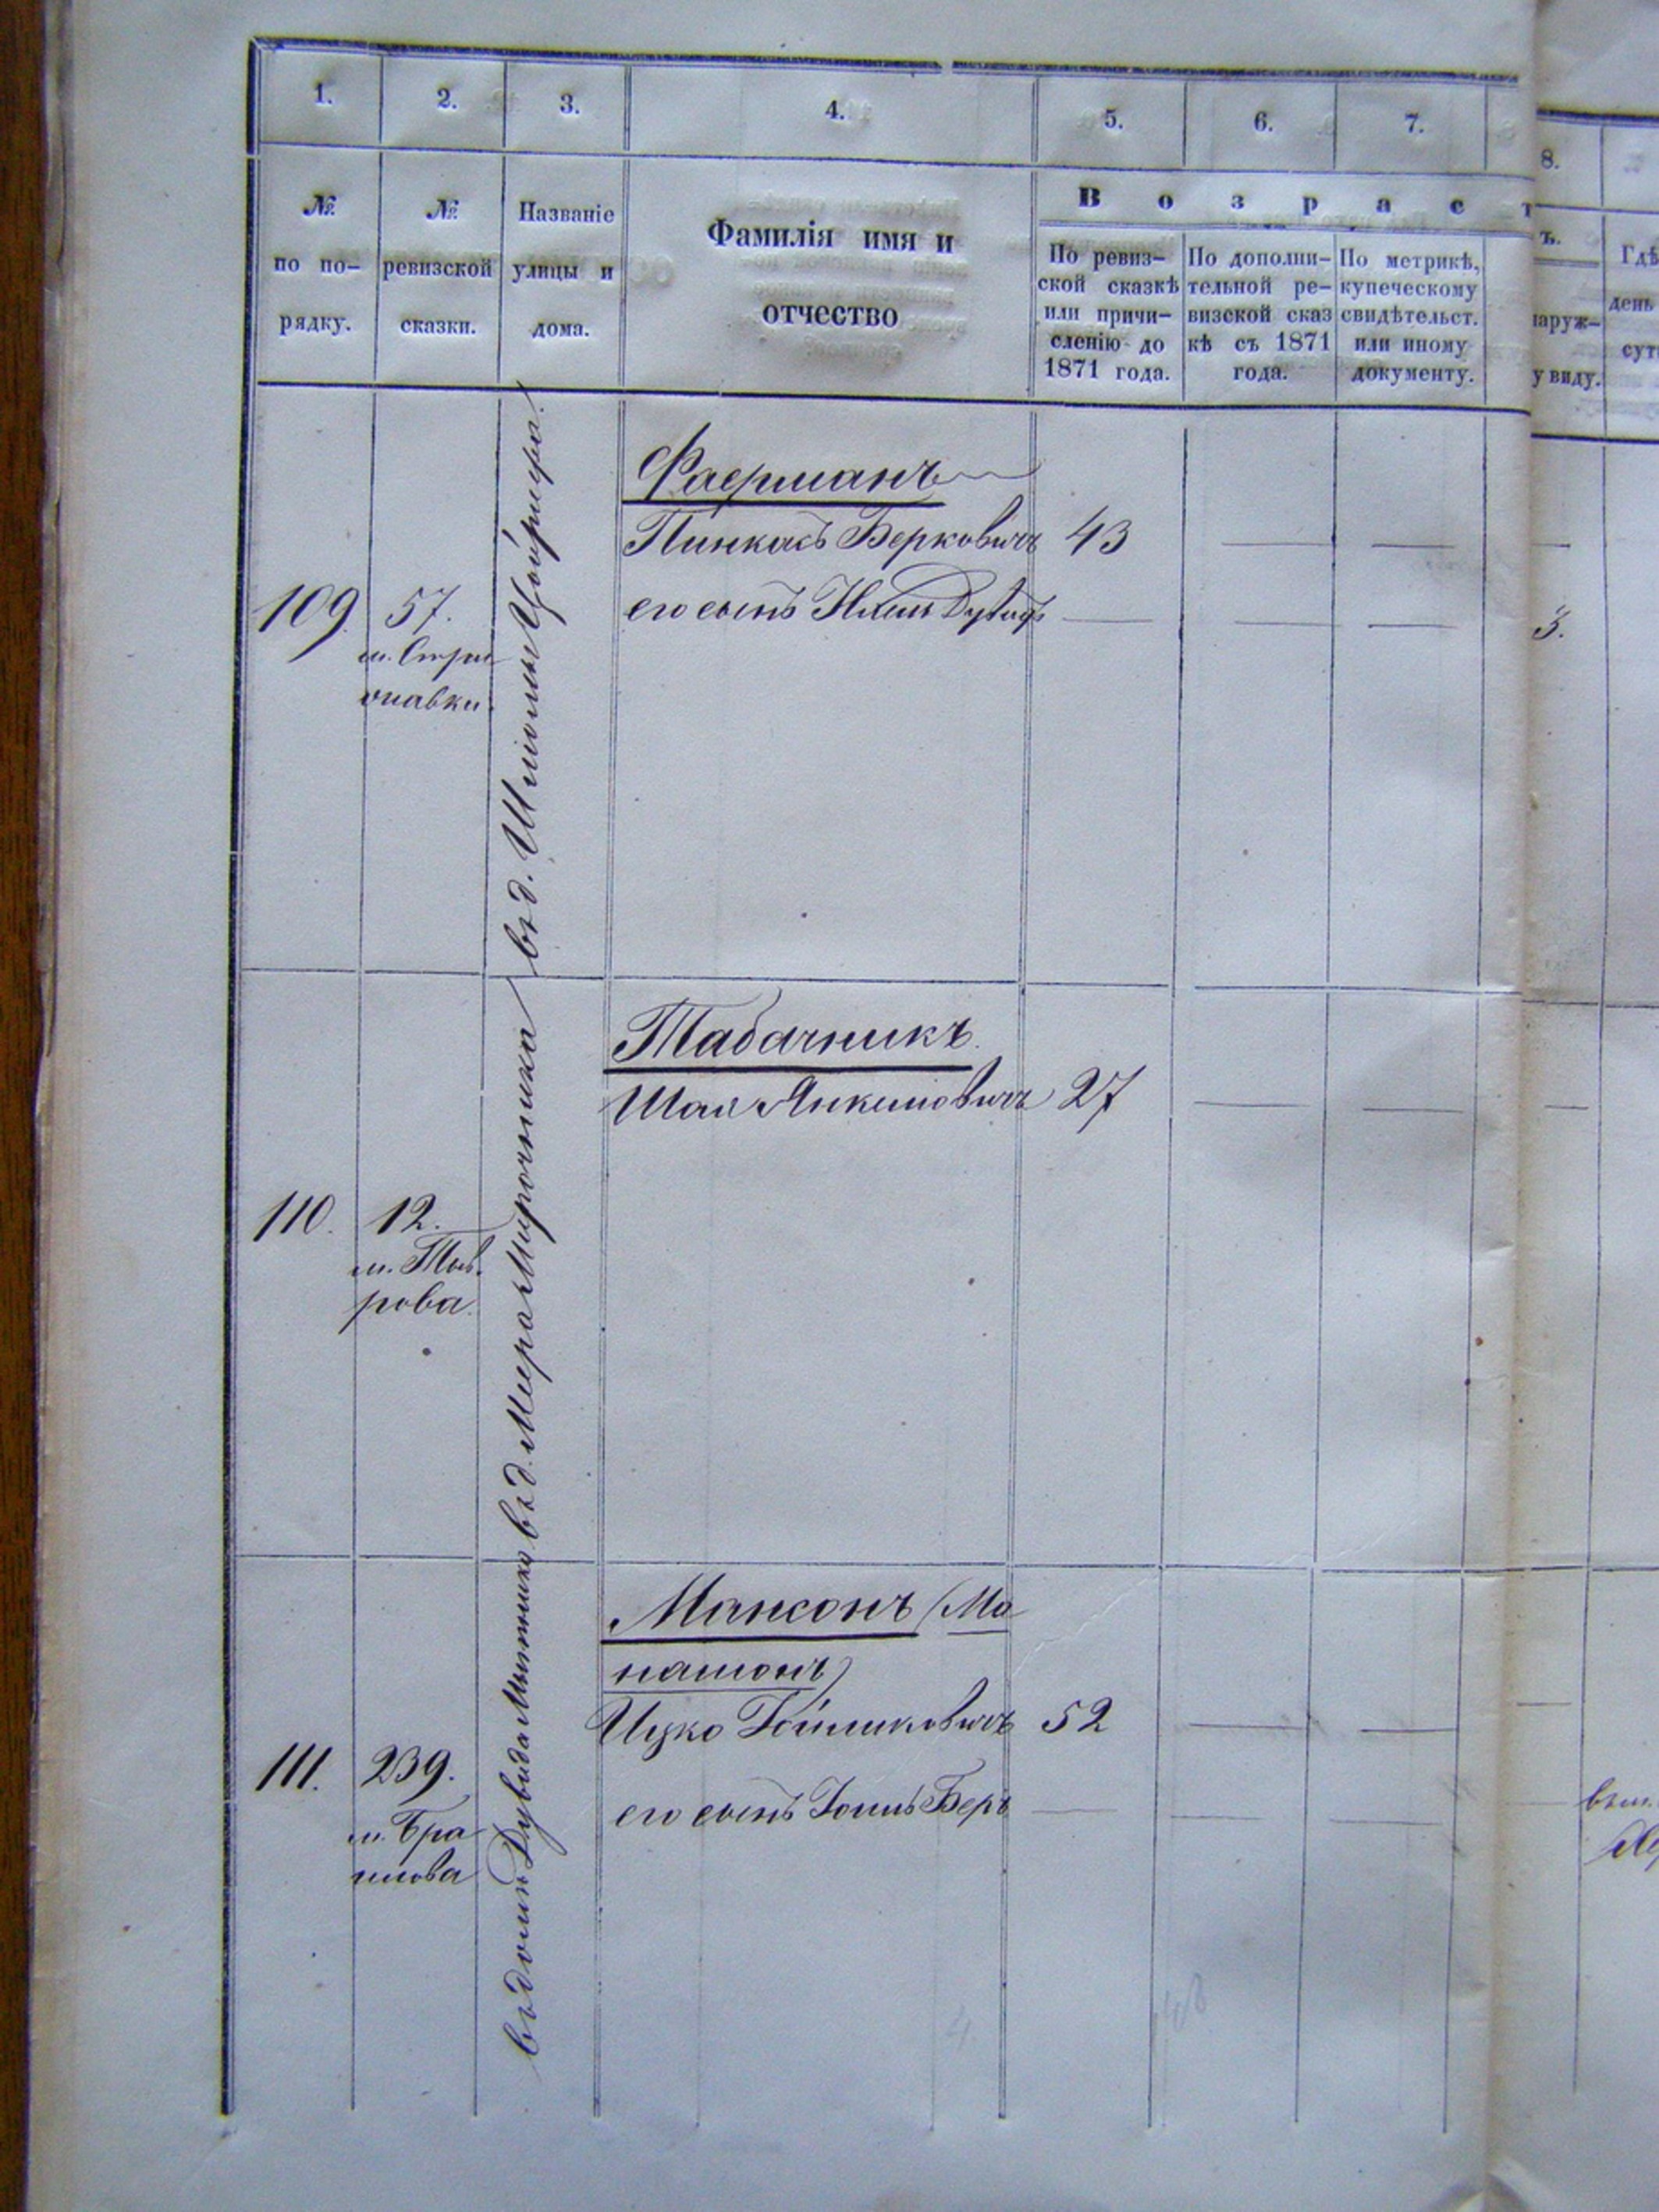 1. 2. 3. 4. 5. 6. 7. 8.
№ по по-
рядку.
№
ревизской
сказки.
Названіе
улицы и
дома.
Фамилія имя и
отчество
В о з р а с т
По ревиз-
ской сказкѣ
или причи-
сленію до
1871 года.
По дополни-
тельной ре-
визской сказ
кѣ съ 1871
года.
По метрикѣ,
купеческому
свидѣтельст.
или иному
документу.
ъ.
наруж-
у виду.
Гдѣ
день
сут
109. 57.
м. Стри
жавки.
въ д.
Фаерманъ
Пинкасъ Берковичъ 43 — —
его сынъ Дувидъ — — — 3.
110. 12.
м. Тыв
рова.
въ д. Мера Мирочника
Табачникъ
Шая Янкелевичъ 27 — — —
111. 239.
м. Бра
илова
въ домѣ Дувида
Мансонъ (Ма
нашонъ)
Ицко 52 — — —
его сынъ Іоиль Беръ — — —